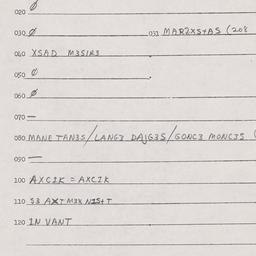 020 Ø
030 Ø 033 MARZXS+AS (208
040 XSAD M3SIR3
050 Ø
060 Ø
070 —
080 MANE TAN3S/LANG3 DAJG3S/GONG3 MONCJS (
090 —
100 AXCIK = AXCIK
110 S3 AXT M3X NIS+T
120 IN VANT